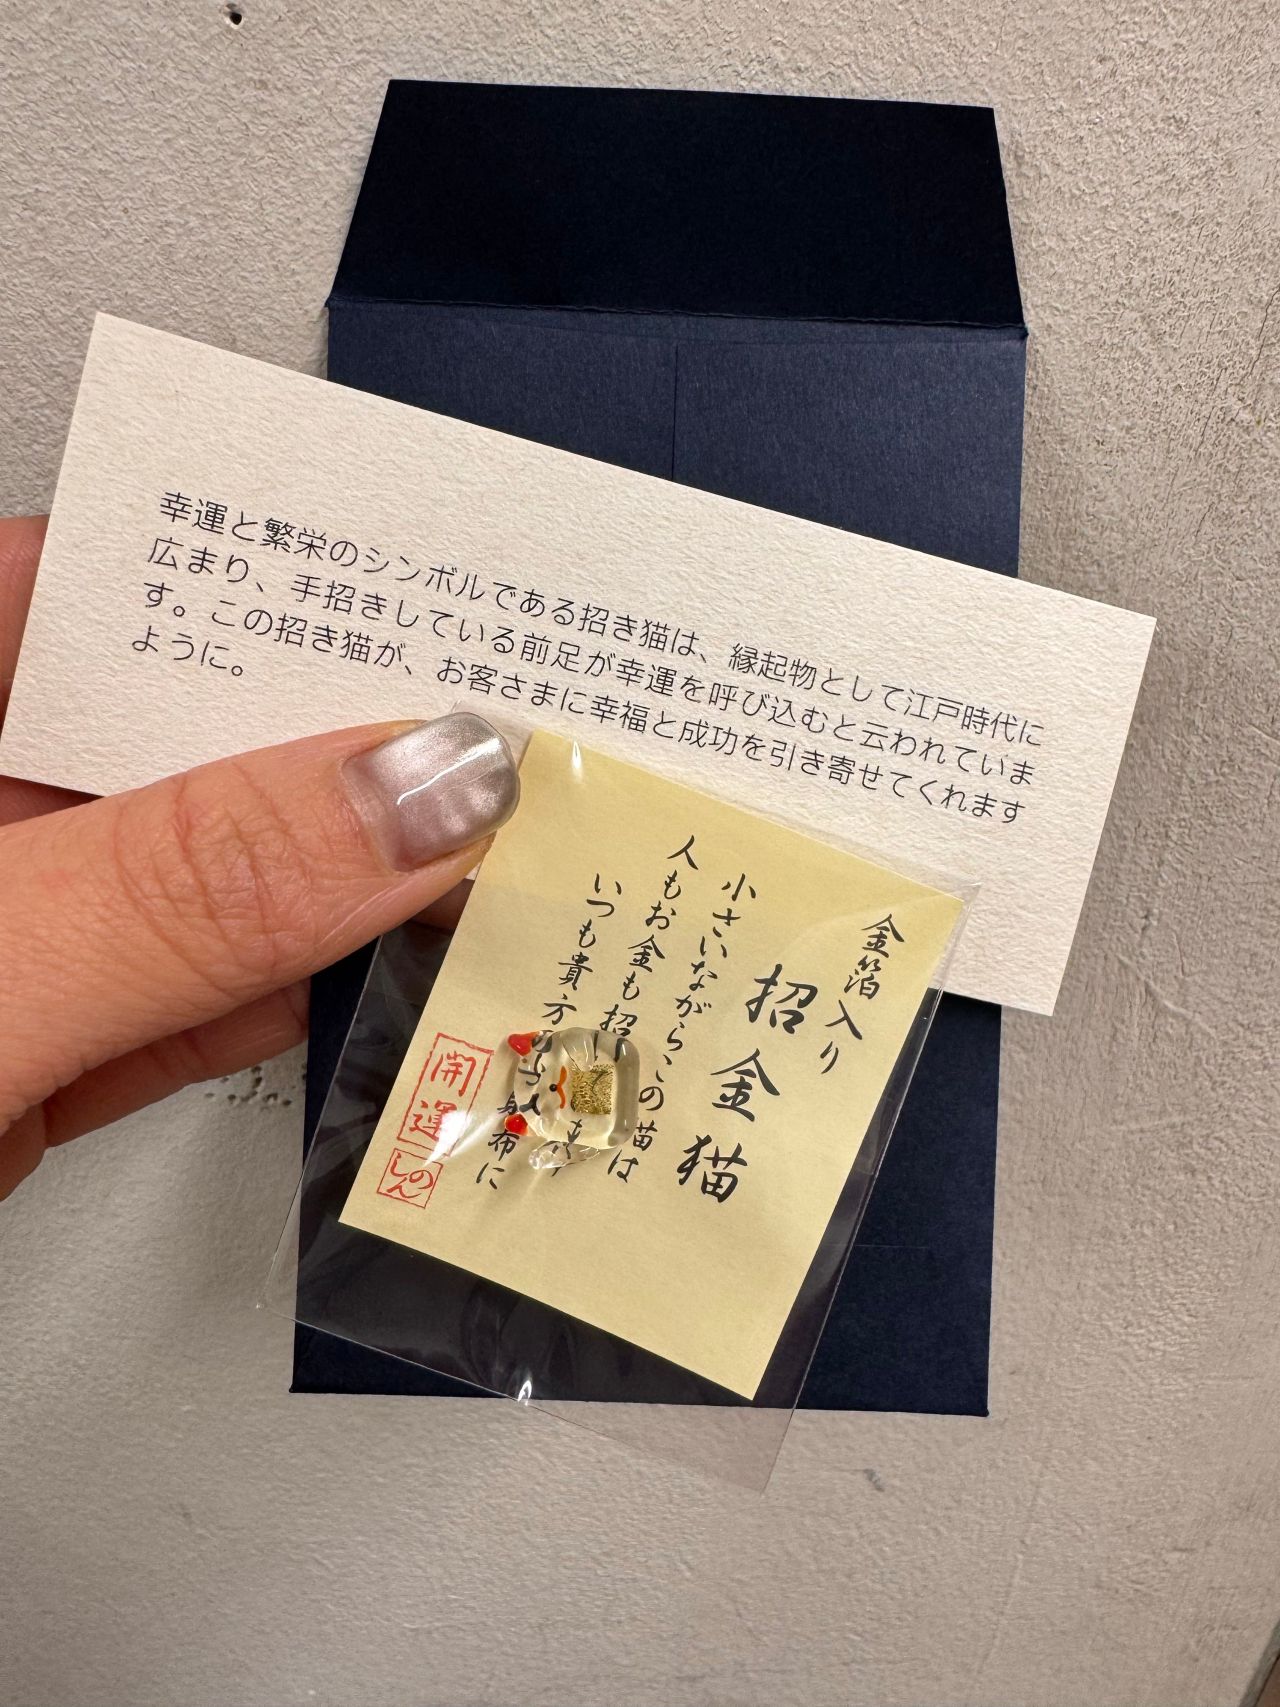 幸運と繁栄のシンボルである招き猫は、縁起物として江戸時代に
広まり、手招きしている前足が幸運を呼び込むと云われていま
す。この招き猫が、お客さまに幸福と成功を引き寄せてくれます
ように。
金箔入り
招金猫
小さいながらこの猫は
人もお金も招
いつも貴方の 布に
開運
しのん